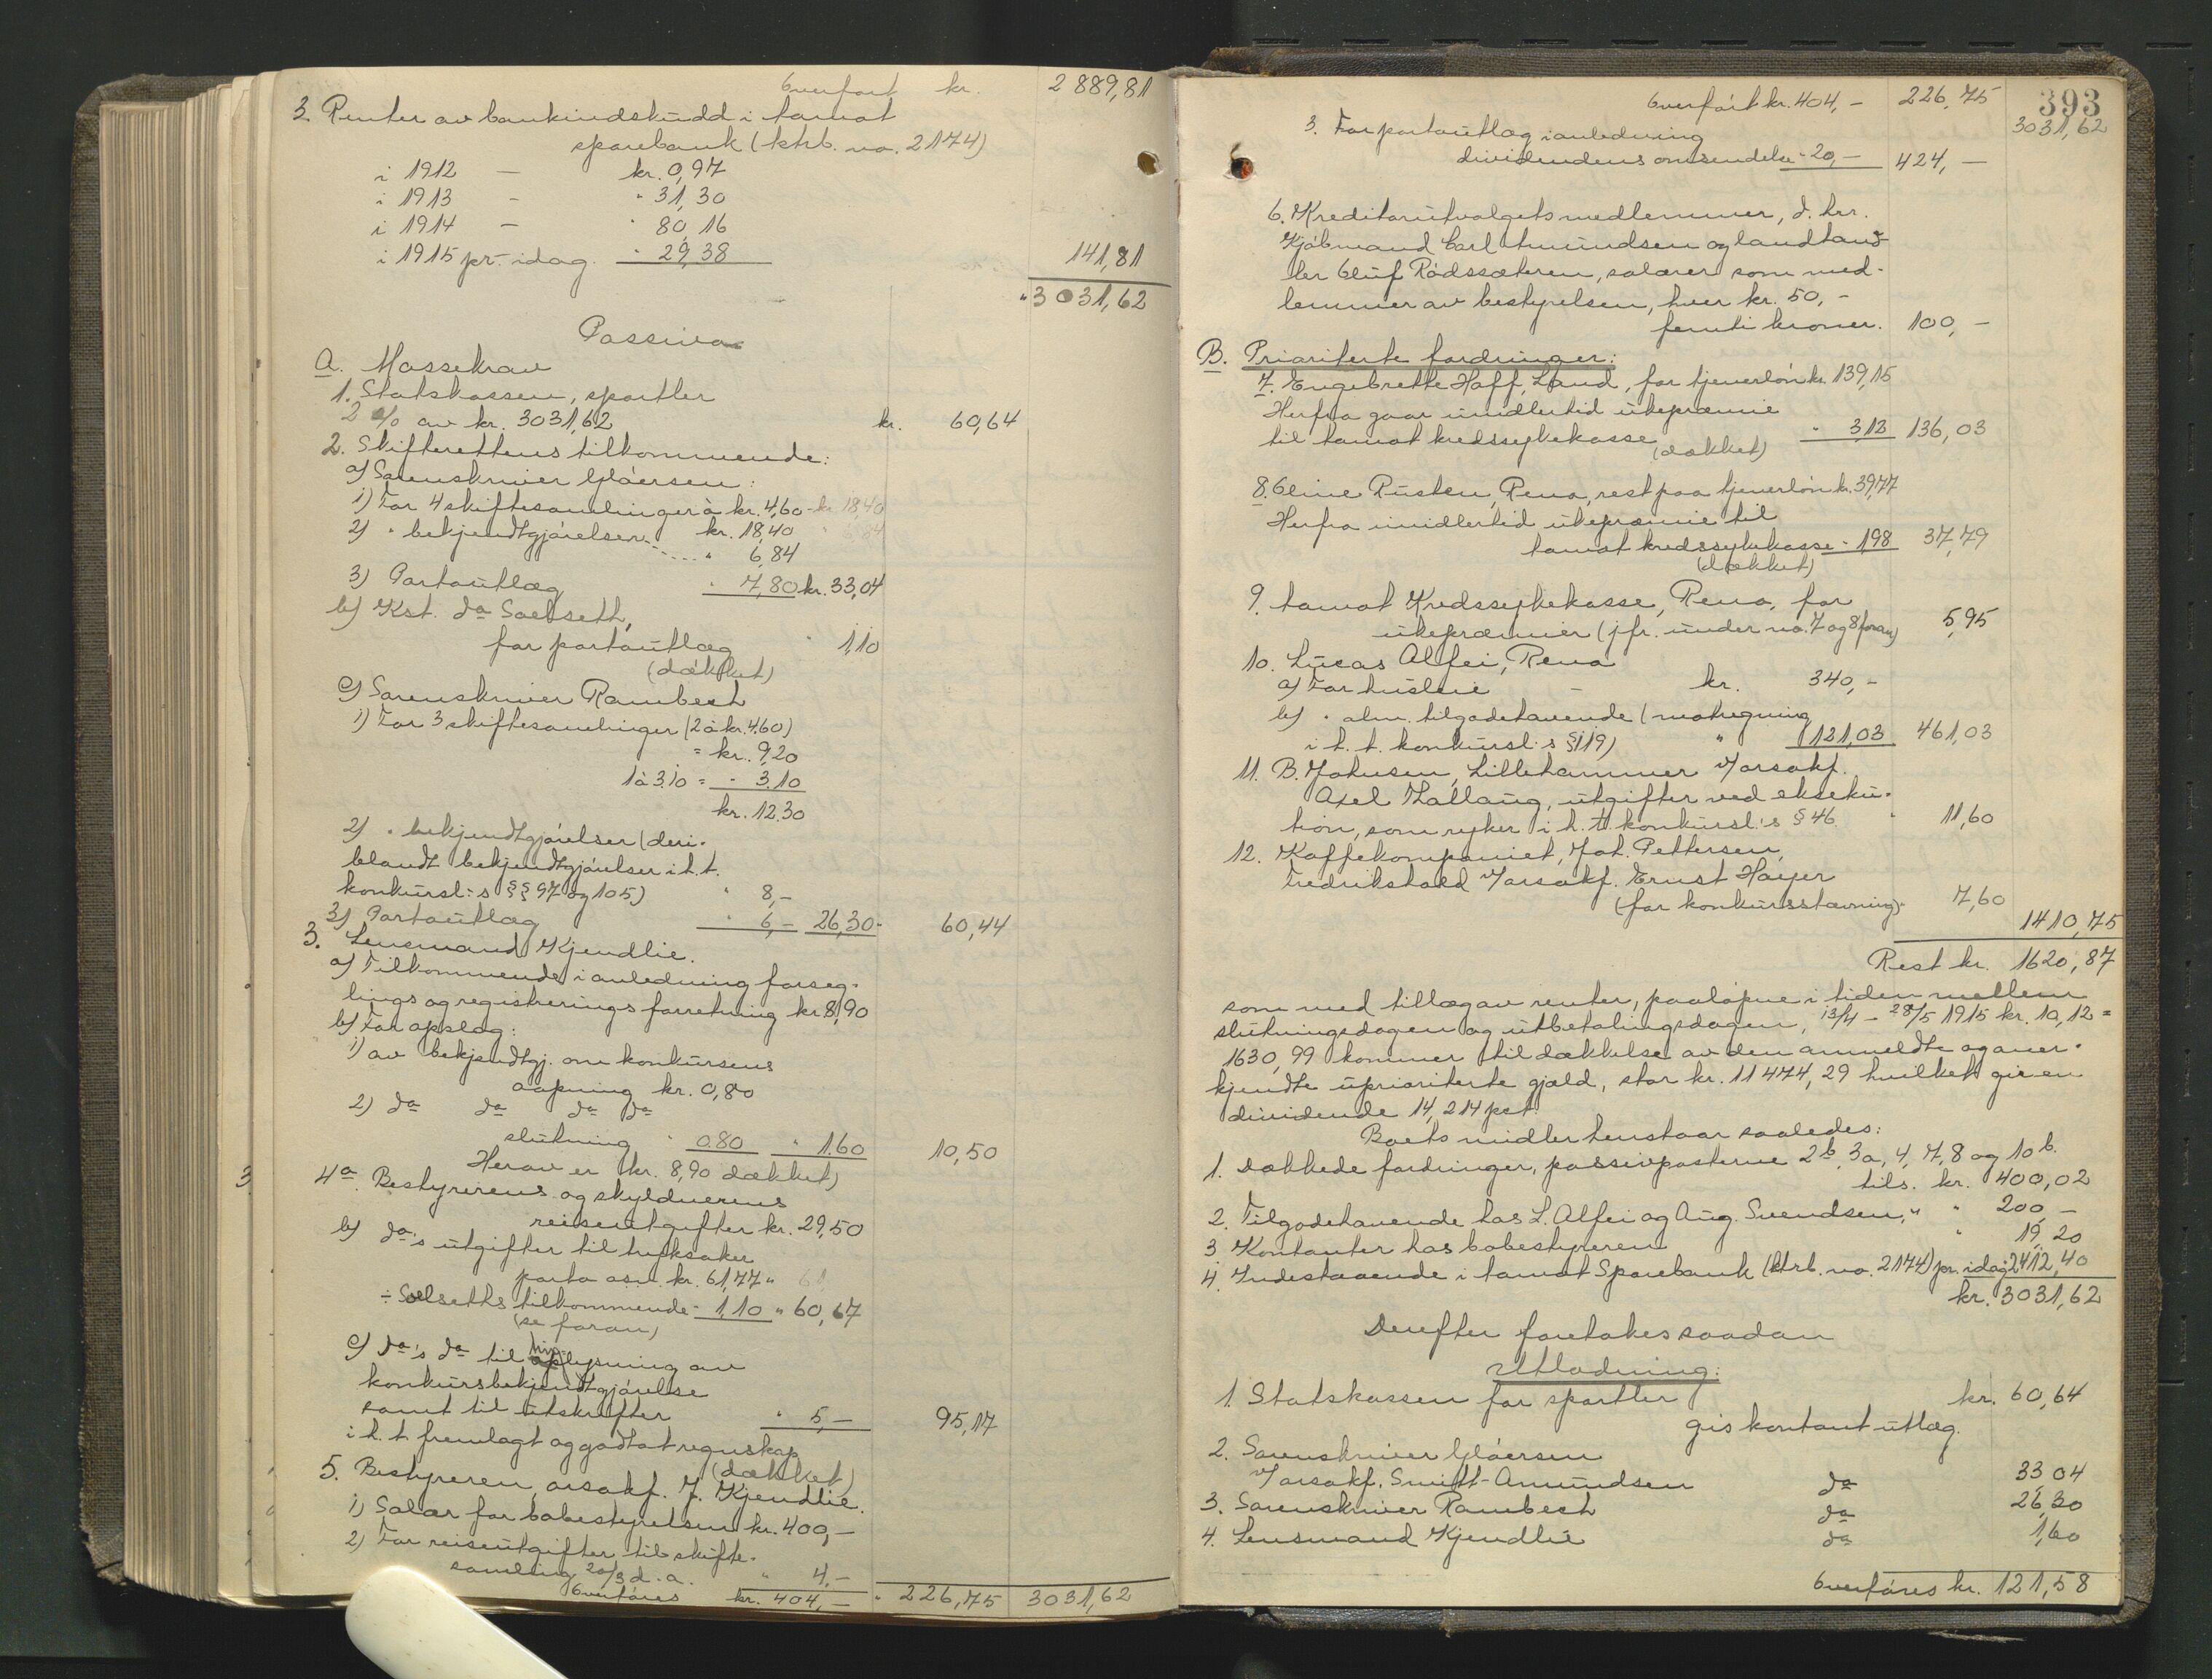 Overført kr. 2889,81
3. Renter av bankindskudd i Aamot
sparebank (ktrb. no. 2174)
i 1912 - kr. 0,97
i 1913 - " 31,30
i 1914 - " 80,16
i 1915 pr. idag. " 29,38 141,81
" 3031,62
Passiva
A. Massekrav
1. Statskassen, sportler
2 % av kr. 3031,62 kr. 60,64
2. Skifterettens tilkommende:
a) Sorenskriver Gløersen:
1) For 4 skiftesamlinger à kr. 4,60 - kr. 18,40
2) " bekjendtgjørelser kr. 18,40 " 6,84
" 6,84
3) Portoutlæg " 7,80 kr. 33,04
b) Kst. do Soelseth,
for portoutlæg " 1,10
(dækket)
c) Sorenskriver Rambech
1) For 3 skiftesamlinger (2 à kr. 4.60)
= kr. 9,20
1 à 3.10 = " 3.10
kr. 12.30
2) " bekjendtgjørelser (deri-
blandt bekjendtgjørelser i h.t.
konkursl:s §§ 97 og 105) " 8,-
3) Portoutlæg " 6,- 26,30 " 60,44
3. Lensmand Kjendlie.
a) Tilkommende i anledning forseg-
lings og registrerings forretning kr. 8,90
b) For opslag:
1) av bekjendtgj. om konkursens
aapning kr. 0,80
2) do do do do
slutning " 0.80 " 1.60 10,50
Herav er (kr. 8,90 dækket)
4a. Bestyrerens og skyldnerens
reiseutgifter kr. 29,50
b) do's utgifter til tryksaker
porto osv. kr. 61,77 "
÷ Soelseths tilkommende " 1,10 " 60,67
(se foran)
c) do's do til lysning av
konkursbekjendtgjørelse
samt til utskrifter " 5,- 95,17
i h. t. fremlagt og godtat regnskap
(dækket)
5. Bestyreren, orsakf. J. Kjendlie.
1) Salær for bobestyrelsen kr. 400,-
2) For reiseutgifter til skifte-
samling 20/3 d. a. " 4,-
Overføres kr. 404,- " 226,75 3031,62
393
Overført kr. 404,- 226,75 3031,62
3. For portoutlæg i anledning
dividendens omsendelse " 20,- 424,-
6. Kreditorutvalgets medlemmer, d. hrr.
Kjøbmand Carl Amundsen og landhand-
ler Oluf Rødssæteren, salærer som med-
lemmer av bestyrelsen, hver kr. 50,-
femti kroner. 100,-
B. Prioriterte fordringer:
7. Engebrette Hoff, Land, for tjenerløn kr. 139,15
Herfra gaar imidlertid ukepræmie
til Aamot kredssykekasse " 3,12 136,03
(dækket)
8. Oline Rusten, Rena, rest paa tjenerløn kr. 39,77
Herfra imidlertid ukepræmie til
Aamot kredssykekasse " 1,98 37,79
(dækket)
9. Aamot Kredssykekasse, Rena, for
ukepræmier (jfr. under no. 7 og 8 foran) 5,95
10. Lucas Alfei, Rena
a) For husleie - kr. 340,-
b) " alm. tilgodehavende (motregning
i h. t. konkursl:s § 119) " 121,03 461,03
11. B. Johnsen, Lillehammer v/orsakf.
Axel Hallaug, utgifter ved ekseku-
tion, som ryker i h. t. konkursl:s § 46 " 11,60
12. Kaffekompaniet, Joh. Pettersen,
Fredrikstad v/orsakf. Ernst Høyer
(for konkursstævning) " 7,60
1410,75
Rest kr. 1620,87
som med tillæg av renter, paaløpne i tiden mellem
slutningsdagen og utbetalingsdagen, 13/4 - 28/5 1915 kr. 10,12 =
1630,99 kommer til dækkelse av den anmeldte og aner-
kjendte uprioriterte gjæld, stor kr. 11474,29 hvilket gir en
dividende 14,214 pct.
Boets midler henstaar saaledes:
1. Dækkede fordringer, passivposterne 2b, 3a, 4, 7, 8 og 10b.
tils. kr. 400,02
2. Tilgodehavende hos L. Alfei og Aug. Svendsen, " " 200,-
3. Kontanter hos bobestyreren " 19,20
4. Indestaaende i Aamot Sparebank (ktrb. no. 2174) pr. idag " 2412,40
kr. 3031,62
Derefter foretokes saadan
Utlodning:
1. Statskassen for sportler kr. 60,64
gis kontant utlæg.
2. Sorenskriver Gløersen
v/orsakf. Smitt-Amundsen do 33,04
3. Sorenskriver Rambech do 26,30
4. Lensmand Kjendlie do 1,60
Overføres kr. 121,58
3